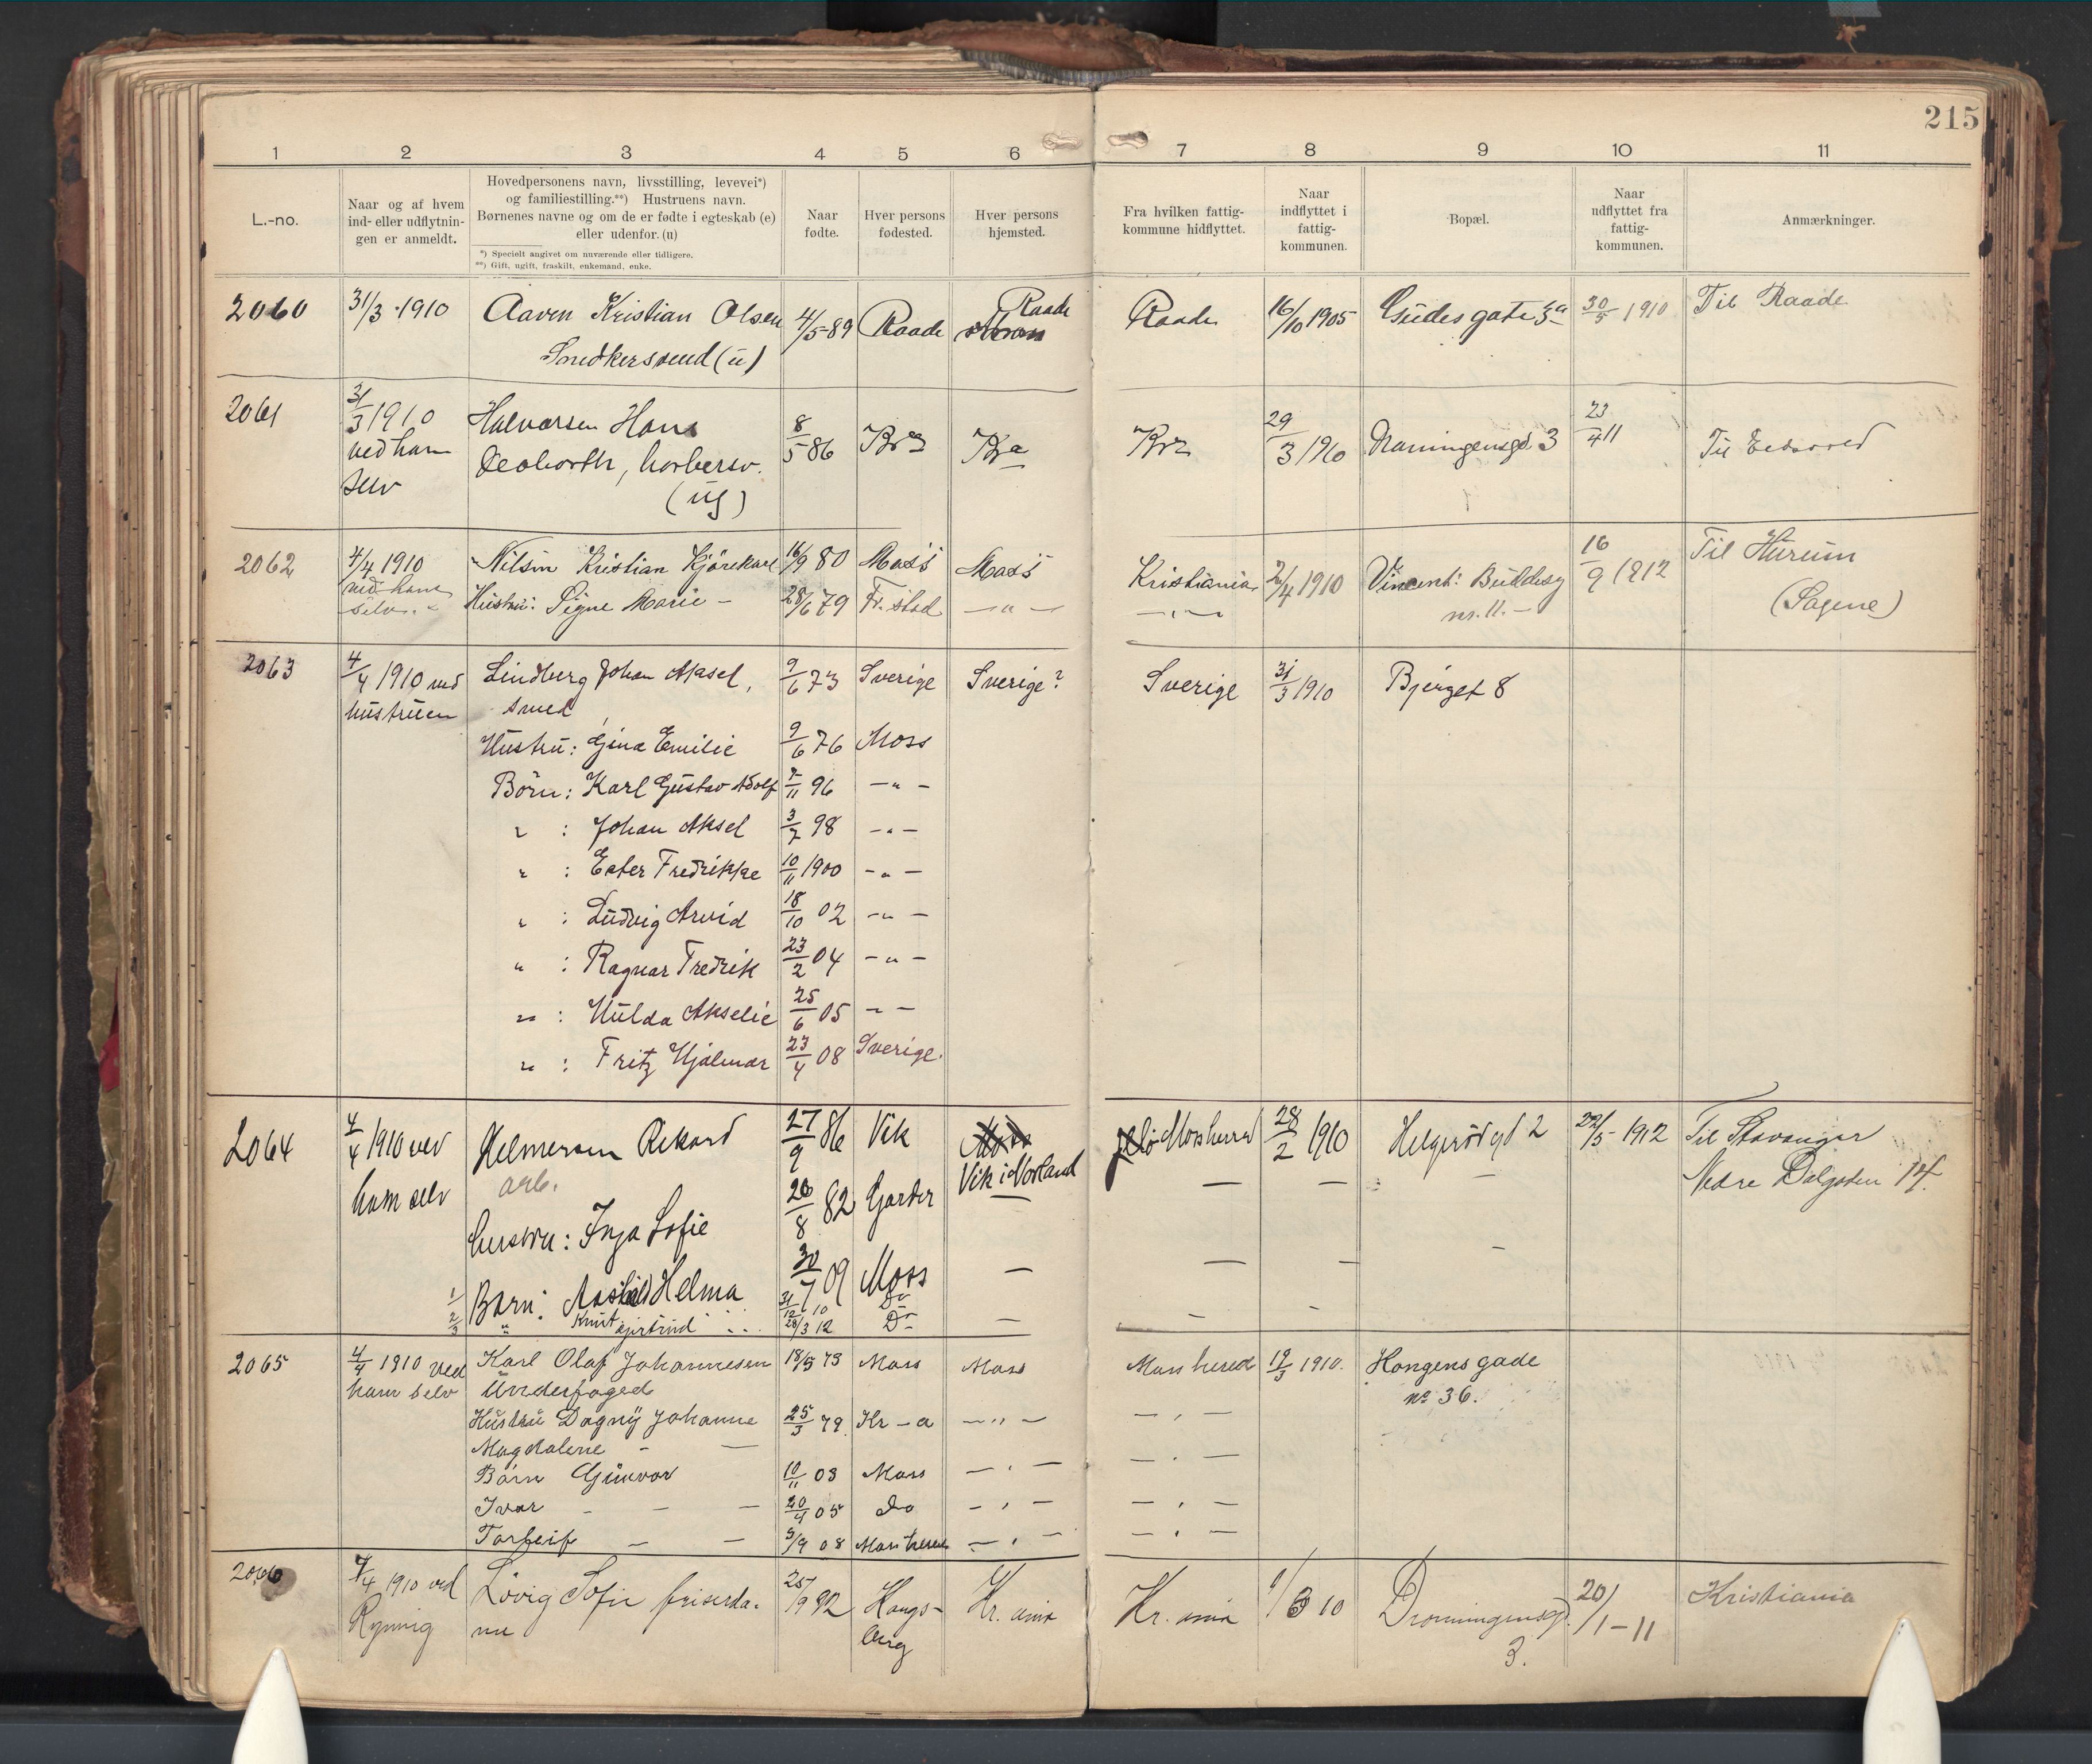 215
1 2 3 4 5 6 7 8 9 10 11
L.-no.
Naar og af hvem
ind- eller udflytnin-
gen er anmeldt.
Hovedpersonens navn, livsstilling, levevei*)
og familiestilling.**) Hustruens navn.
Børnenes navne og om de er fødte i egteskab (e)
eller udenfor. (u)
*) Specielt angivet om nuværende eller tidligere.
**) Gift, ugift, fraskilt, enkemand, enke.
Naar
fødte.
Hver persons
fødested.
Hver persons
hjemsted.
Fra hvilken fattig-
kommune hidflyttet.
Naar
indflyttet i
fattig-
kommunen.
Bopæl.
Naar
udflyttet fra
fattig-
kommunen.
Anmærkninger.
2060 31/3 1910 Aaven Kristian Olsen 4/5-89 Raade Raade Raade 16/10 1905 Gudes gate 3a 30/5 1910 Til Raade
Snedkersvend (u)
2061 31/3 1910 Halvorsen Hans 8/5 86 Kra Kra Kra 29/3 1910 Droningensgd. 3 23/4 11 Til Eidsvold
ved ham
selv
(ug)
2062 4/4 1910 Nilsen Kristian Kjørekarl 16/9 80 Moss Moss Kristiania 2/4 1910 Vincent Buddesg 16/9 1912 Til Hurum
ved ham
selv. Hustru: Signe Marie - 28/6 79 Fr. stad — " — — " — nr. 11. — (Sagene)
2063 4/4 1910 ved Lindberg Johan Aksel, 9/6 73 Sverige Sverige? Sverige 31/3 1910 Bjerget 8
hustruen smed
Hustru: Gina Emilie 9/6 76 Moss
Börn: Karl Gustav Adolf 7/11 96 — " —
" : Johan Aksel 3/7 98 — " —
" : Ester Fredrikke 10/11 1900 — " —
" : Ludvig Arvid 18/10 02 — " —
" : Ragnar Fredrik 23/2 04 — " —
" : Hulda Akselie 25/6 05 — —
" : Fritz Hjalmar 23/4 08 Sverige.
2064 4/4 1910 ved Helmersen Rikard 27/9 86 Vik Moss Mossherred 28/2 1910 Helgerödgd 2 22/5-1912 Til Stavanger
ham selv arb. Vik i Nordland — — — Nedre Dalgaten 14.
hustru: Inga Sofie 26/8 82 Garder —
1 Barn: Aashild Helma 30/7 09 Moss —
2 Knut 31/12 10 Do
3 " Gjertrud 28/3 12 Do —
2065 4/4 1910 ved Karl Olaf Johannesen 18/5 73 Moss Moss Moss herred 19/3 1910. Hongens gade
ham selv Underfoged no 36.
Hustru Dagny Johanne 25/3 79. Kr-a — " — — " —
Magdalene - —
Börn Gunvor 10/11 03 Moss — " — — " —
Ivar — — — 20/4 05 Do — " — — " —
Torleif — — 5/9 08 Moss herred — " — — " —
2066 7/4 1910 ved Lövig Sofie friserda- 25/9 92 Kongs- Kr. ania Kr. ania 1/3 10 Dronningensgd. 20/1-11 Kristiania
Rynnig me berg 3.